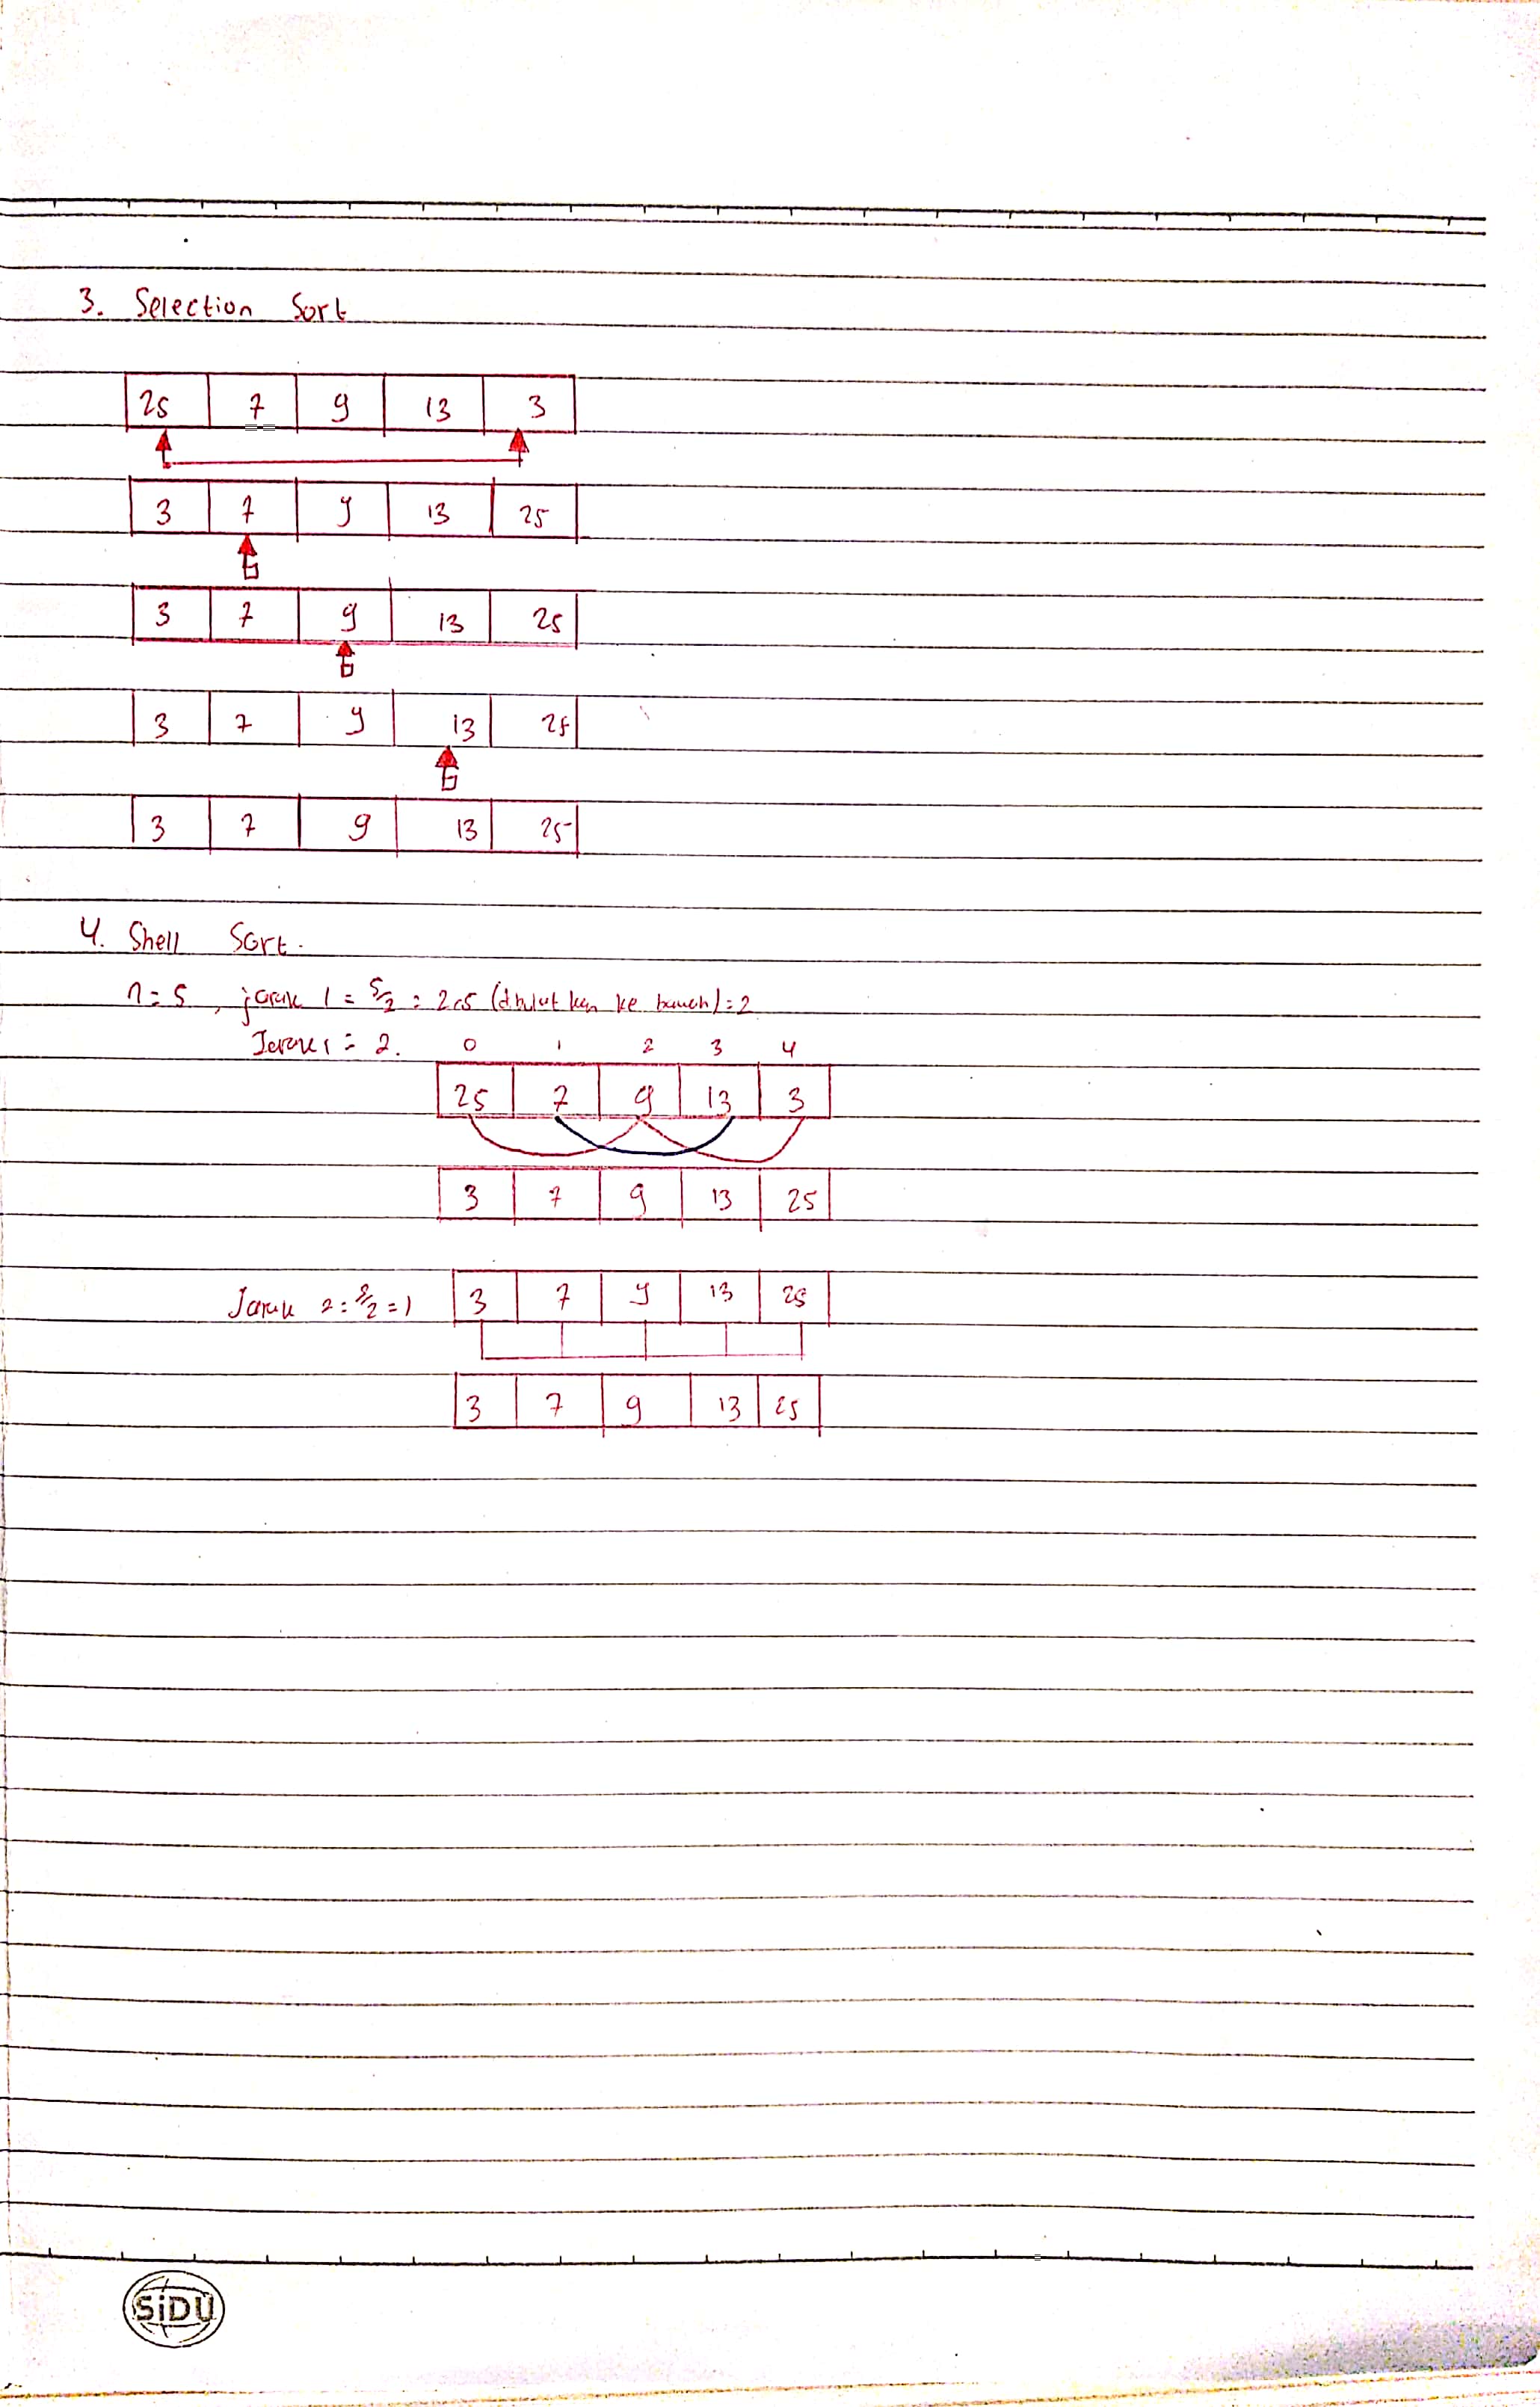 3. Selection Sort
25 7 9 13 3
3 7 9 13 25
3 7 9 13 25
3 7 9 13 25
3 7 9 13 25
4. Shell Sort.
n = 5, jarak 1 = 5/2 = 2.5 (dibulatkan ke bawah) = 2
Jarak 1 = 2. 0 1 2 3 4
25 7 9 13 3
3 7 9 13 25
Jarak 2 = 2/2 = 1 3 7 9 13 25
3 7 9 13 25
SiDU